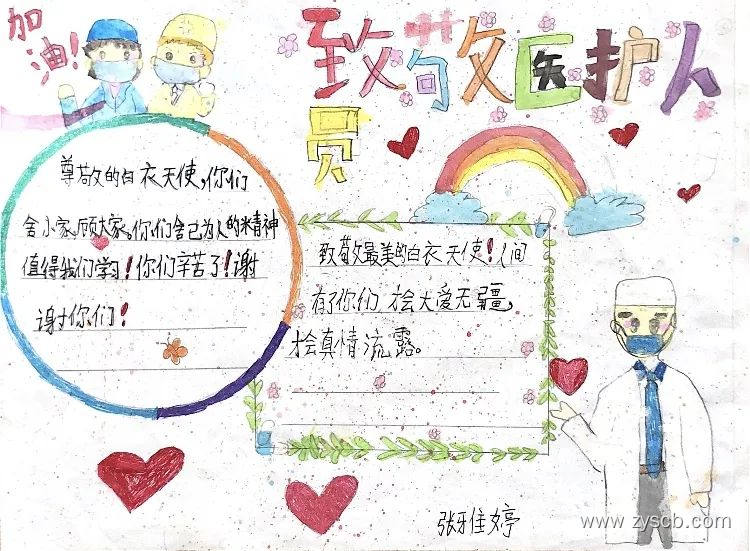 加油!
致敬医护人
员
尊敬的白衣天使,你们
舍小家,顾大家。你们舍己为人的精神
值得我们学习!你们辛苦了!谢
谢你们!
致敬最美的白衣天使!人间
有了你们,才会大爱无疆,
才会真情流露。
张雅佳婷
www.zyscb.com